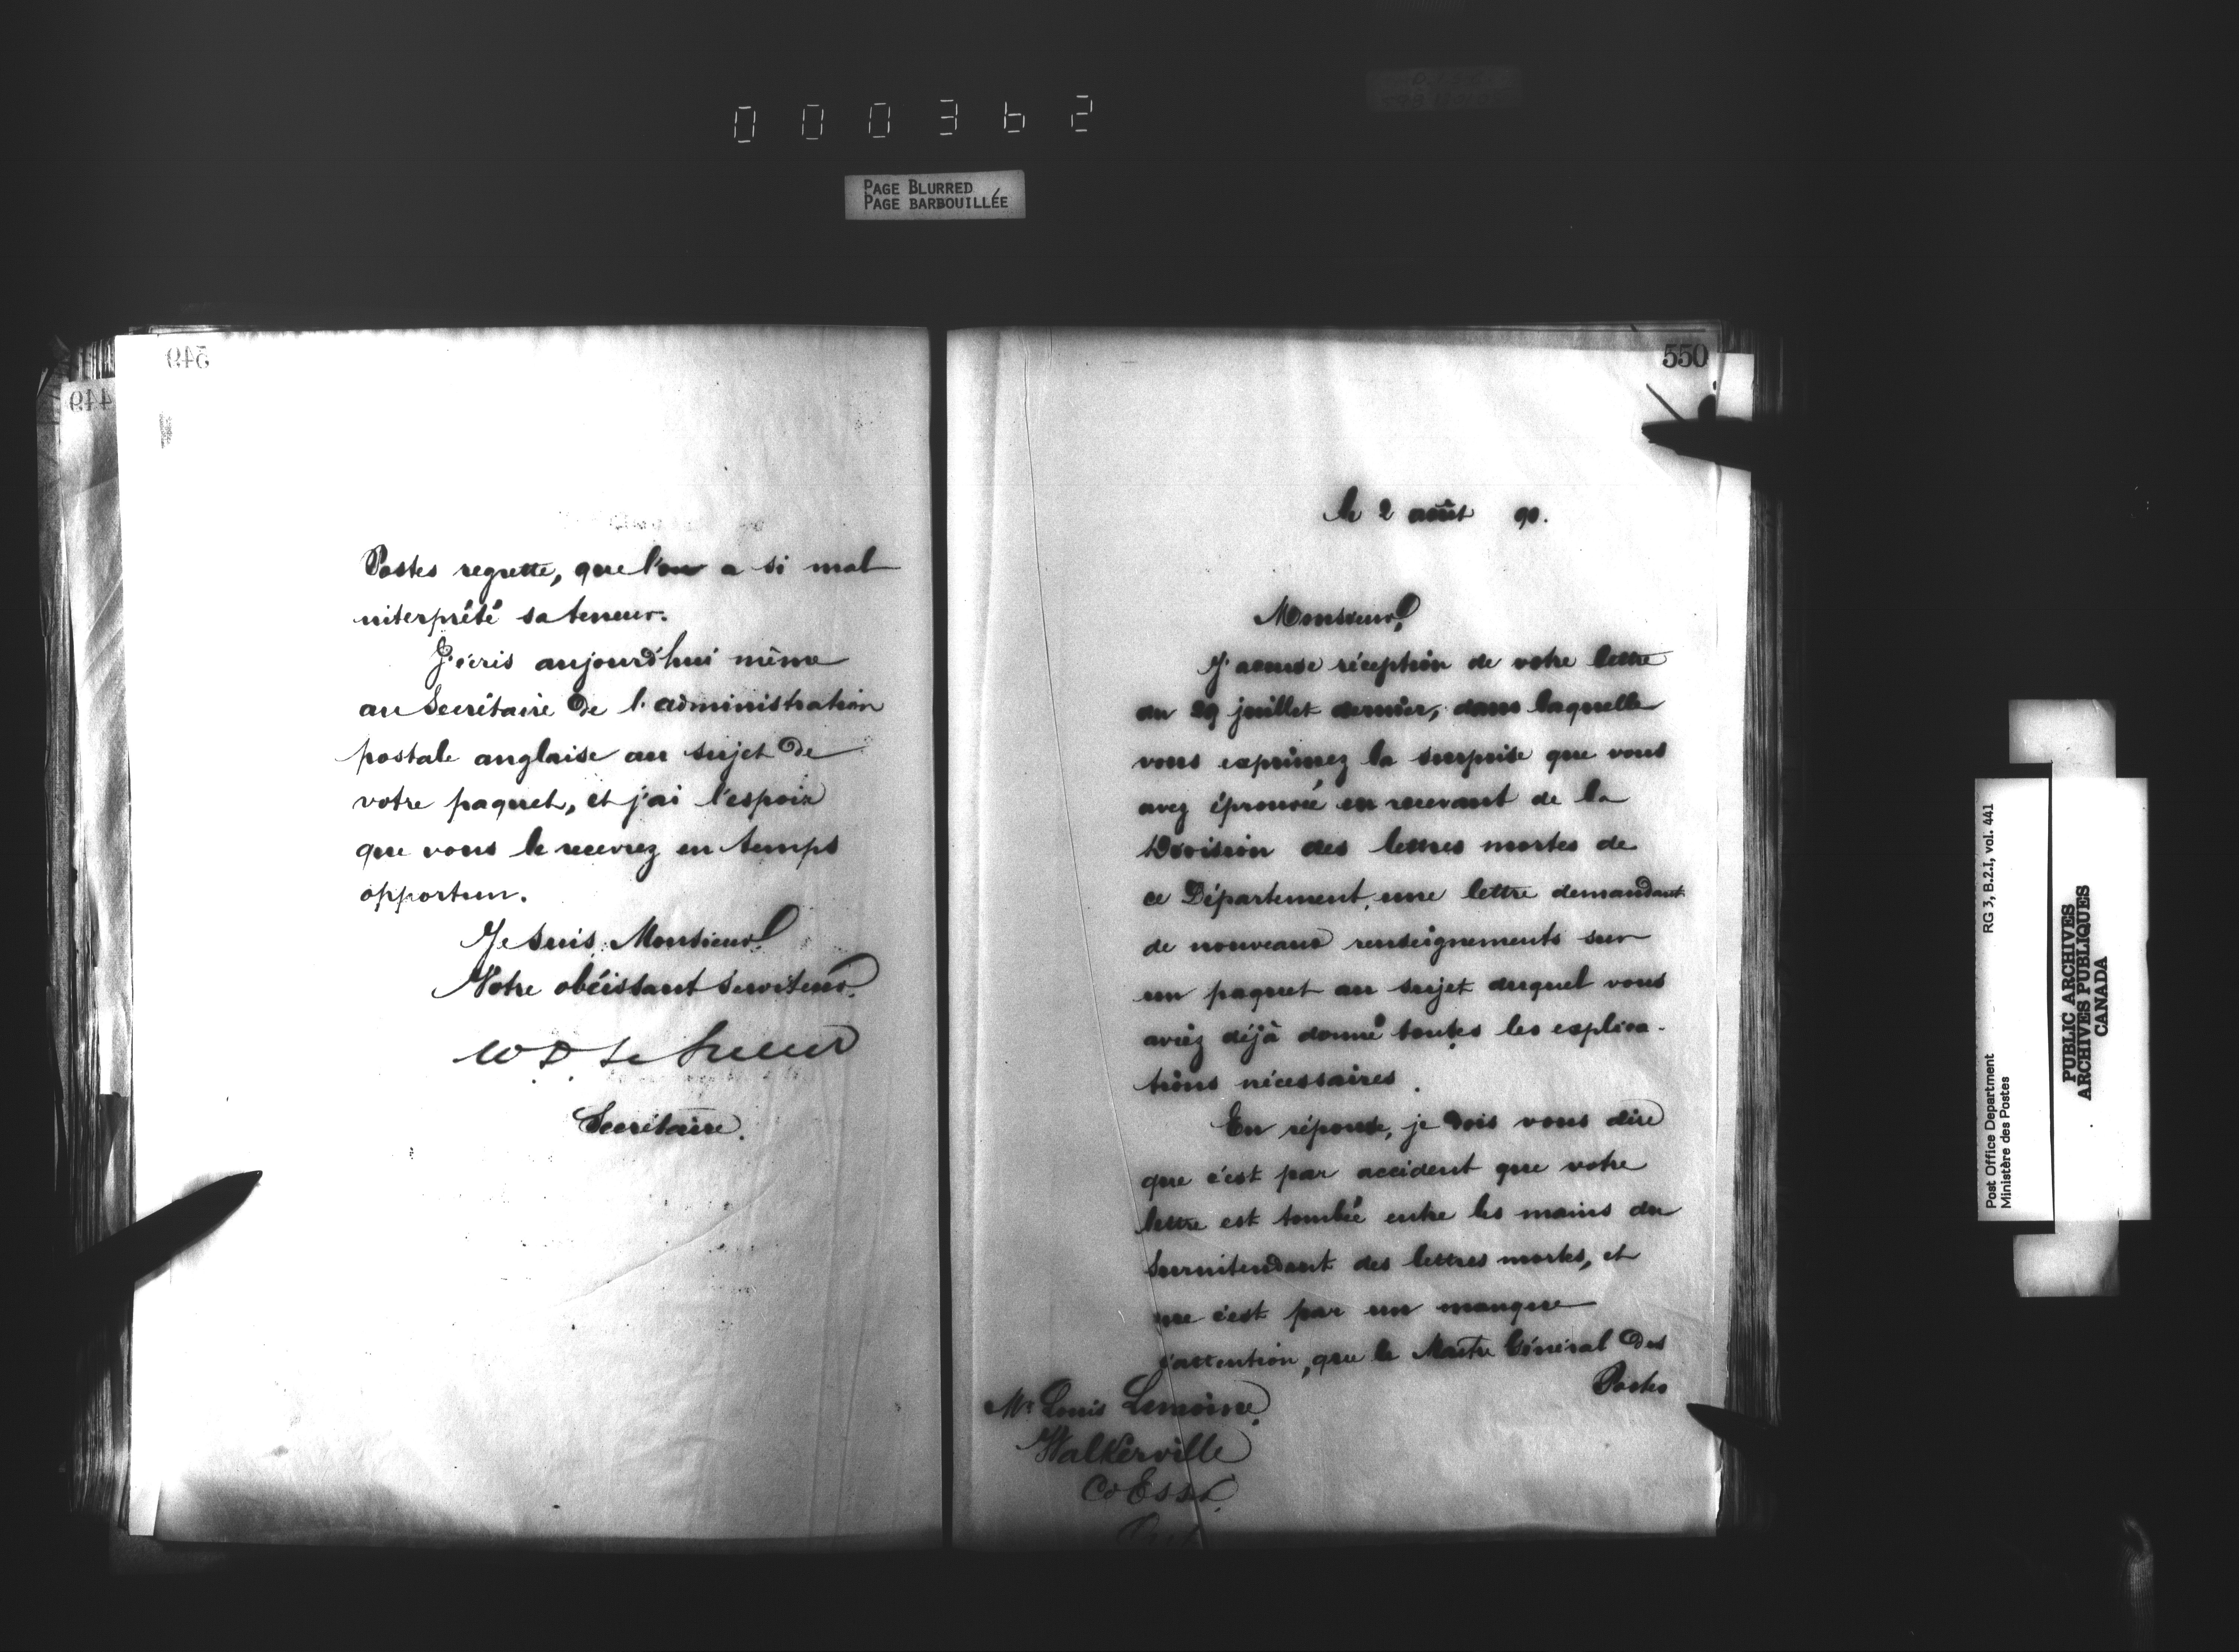 000362
PAGE BLURRED
PAGE BARBOUILLÉE
549
449
Postes regrette, que l'on a si mal
interprété sa teneur.
J'écris aujourd'hui même
au Secrétaire de l'administration
postale anglaise au sujet de
votre paquet, et j'ai l'espoir
que vous le recevrez en temps
opportun.
Je suis, Monsieur,
Votre obéissant serviteur.
W. D. Le Sueur
Secrétaire.
550
le 2 août 90.
Monsieur,
J'accuse réception de votre lettre
du 29 juillet dernier, dans laquelle
vous exprimez la surprise que vous
avez éprouvée en recevant de la
Division des lettres mortes de
ce Département, une lettre demandant
de nouveaux renseignements sur
un paquet au sujet duquel vous
aviez déjà donné toutes les explica-
tions nécessaires.
En réponse, je dois vous dire
que c'est par accident que votre
lettre est tombée entre les mains du
Surintendant des lettres mortes, et
que c'est par un manque
d'attention, que le Maître Général des
Postes
Mr Louis Lemoine,
Walkerville
Co Essex,
Post Office Department
Ministère des Postes
RG 3, B.2.I, vol. 441
PUBLIC ARCHIVES
ARCHIVES PUBLIQUES
CANADA